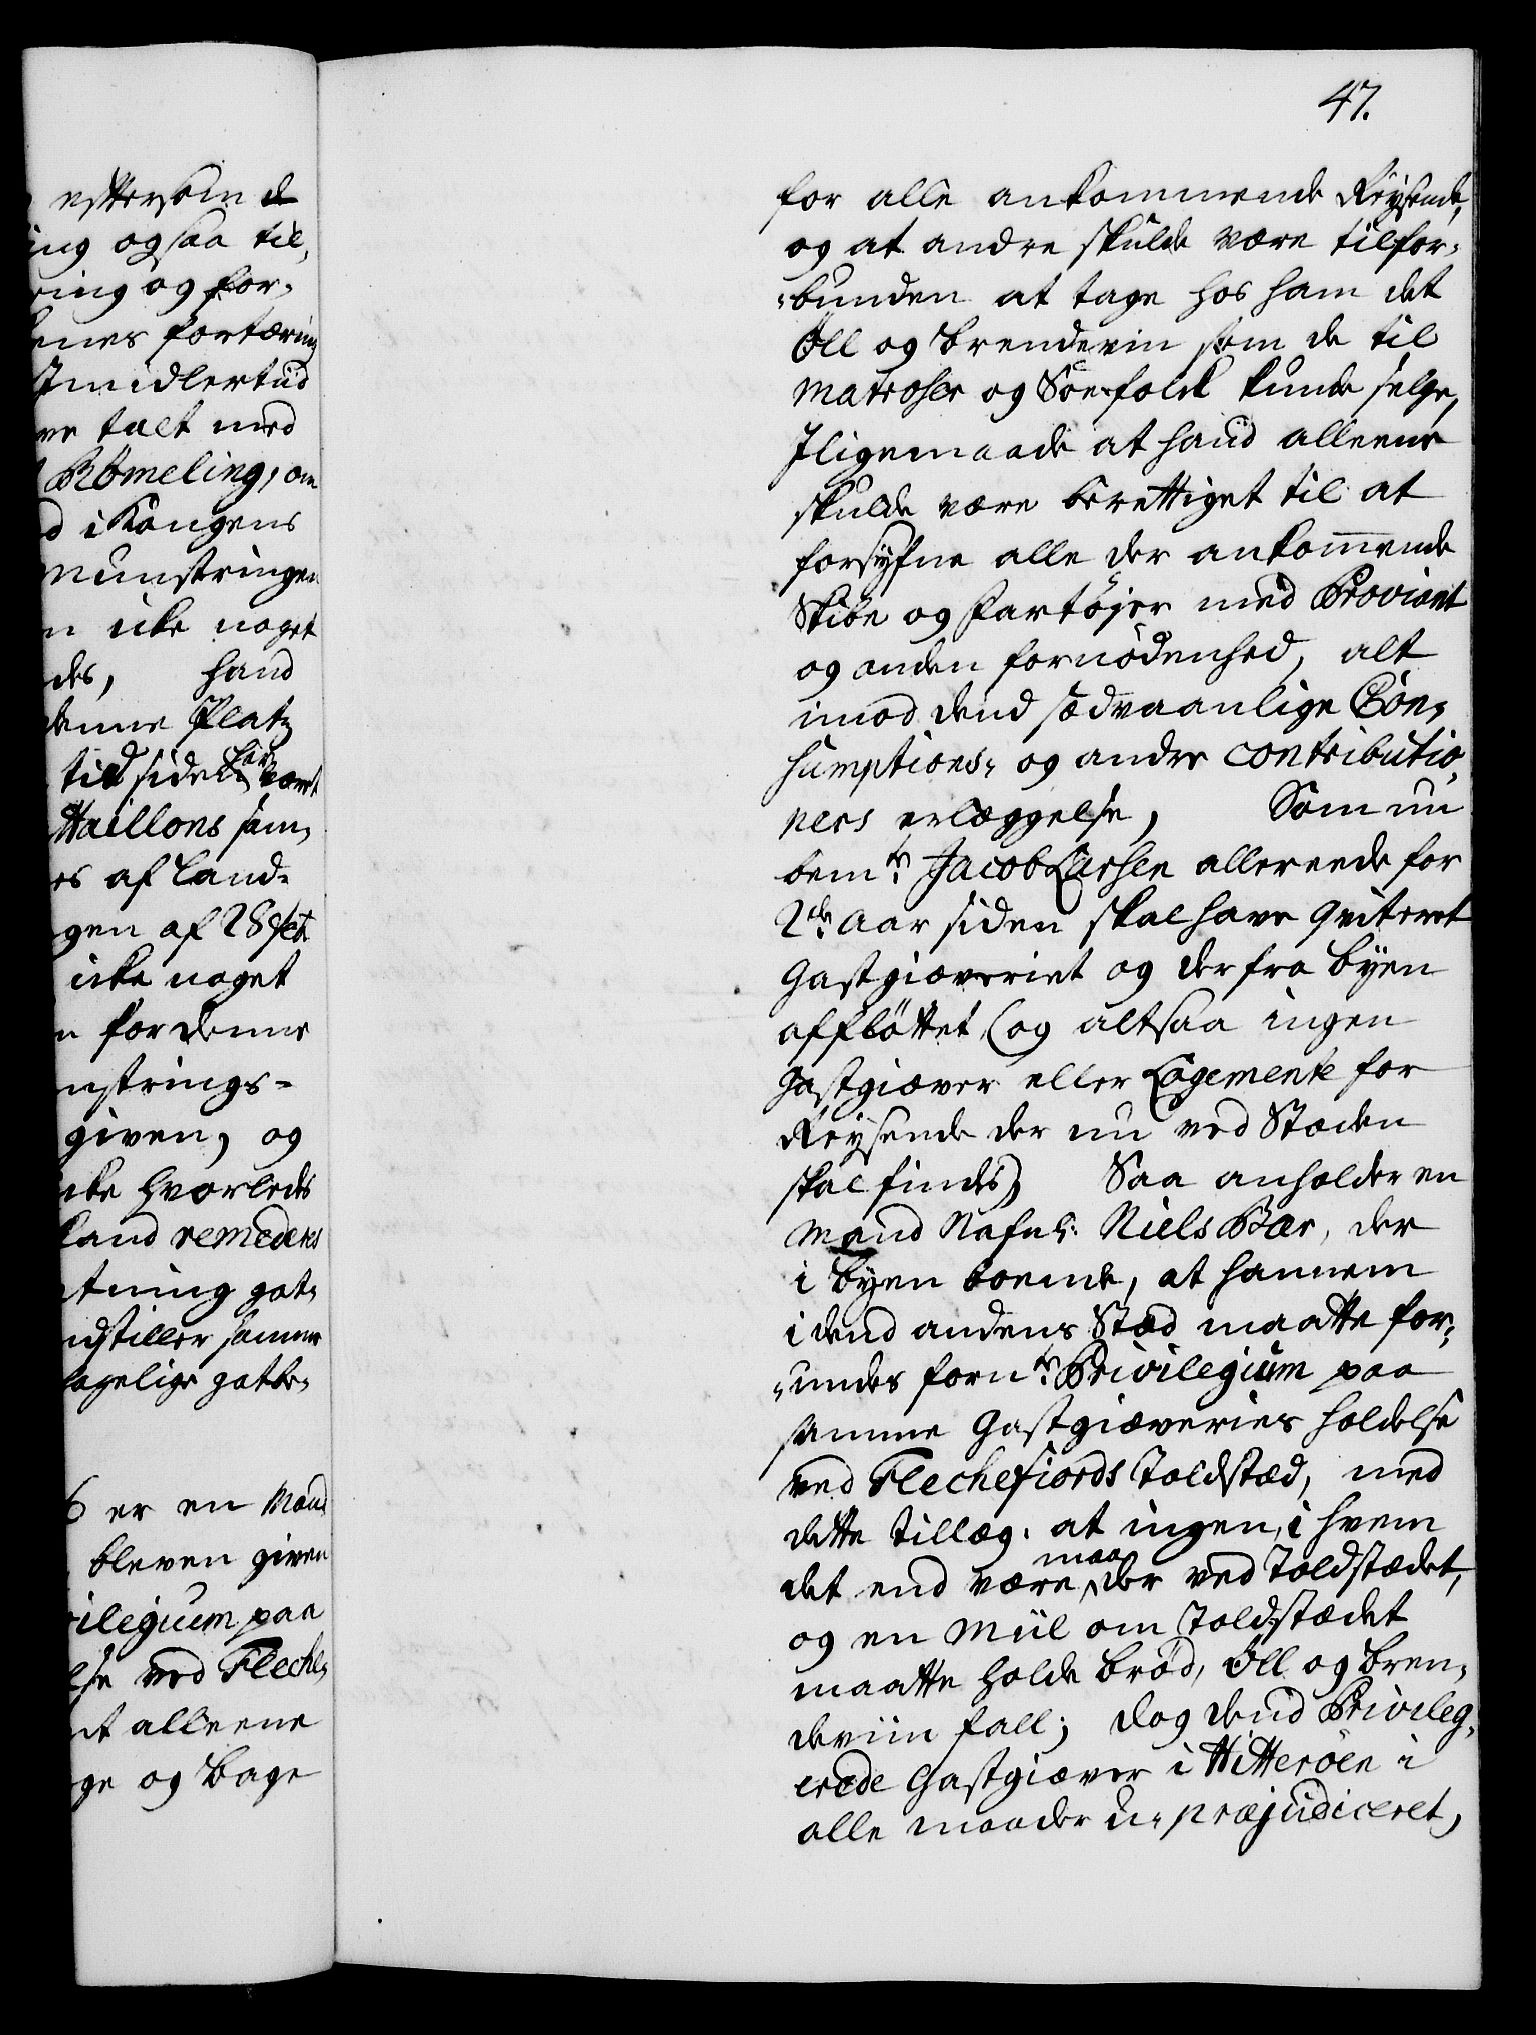 eftersom d
ing ogsaa til,
ring og for,
enes fortæring
Imidlertiid
ve talt med
Römeling, om
d i Kongens
munstringen
n icke noget
des, hand
denne Platz
tid siden har været
ttaillons sam,
es af Land=
gen af 28 Sept
icke noget
n for denne
nstrings=
given, og
cke hvorledes
kand remederes
tning got,
ndstiller samme
agelige gotbe,
6 er en Mand
bleven given
ilegium paa
lse ved Fleche,
et alleene
ge og bage
47.
for alle ankommende Reysende,
og at andre skulde være tilfor=
=bunden at tage hos ham det
Öll og brendevin som de til
Matroser og Söe-folck kunde selge,
Iligemaade at hand alleene
skulde være berettiget til at
forsyfne alle der ankommende
Skibe og Fartöjer med Proviant
og anden fornödenhed, alt
imod dend sædvaanlige Con,
sumptions, og andre contributio,
ners erlæggelse, Som nu
bemte Jacob Larsen allereede for
2de Aar siden skal have qviteret
Gastgiæveriet og derfra byen
afflöttet, (og altsaa ingen
Gastgiæver eller Logemente for
Reysende der nu ved Stæden
skal findes) Saa anholder en
Mand Nafnl: Niels Bær, der
i byen boende, at hannem
i dend andens Stæd maatte for,
=undes fornte Privilegium paa
samme Gastgiæveries holdelse
ved Flechefiords Toldstæd, med
dette tillæg, at ingen, i hvem
det end være maa der ved Toldstædet,
og en Miil om Toldstædet
maatte holde bröd, Öll og bren,
deviin fall; dog dend Privileg,
erede Gastgiæver i Hitteröen i
alle maader u-præjudiceret,